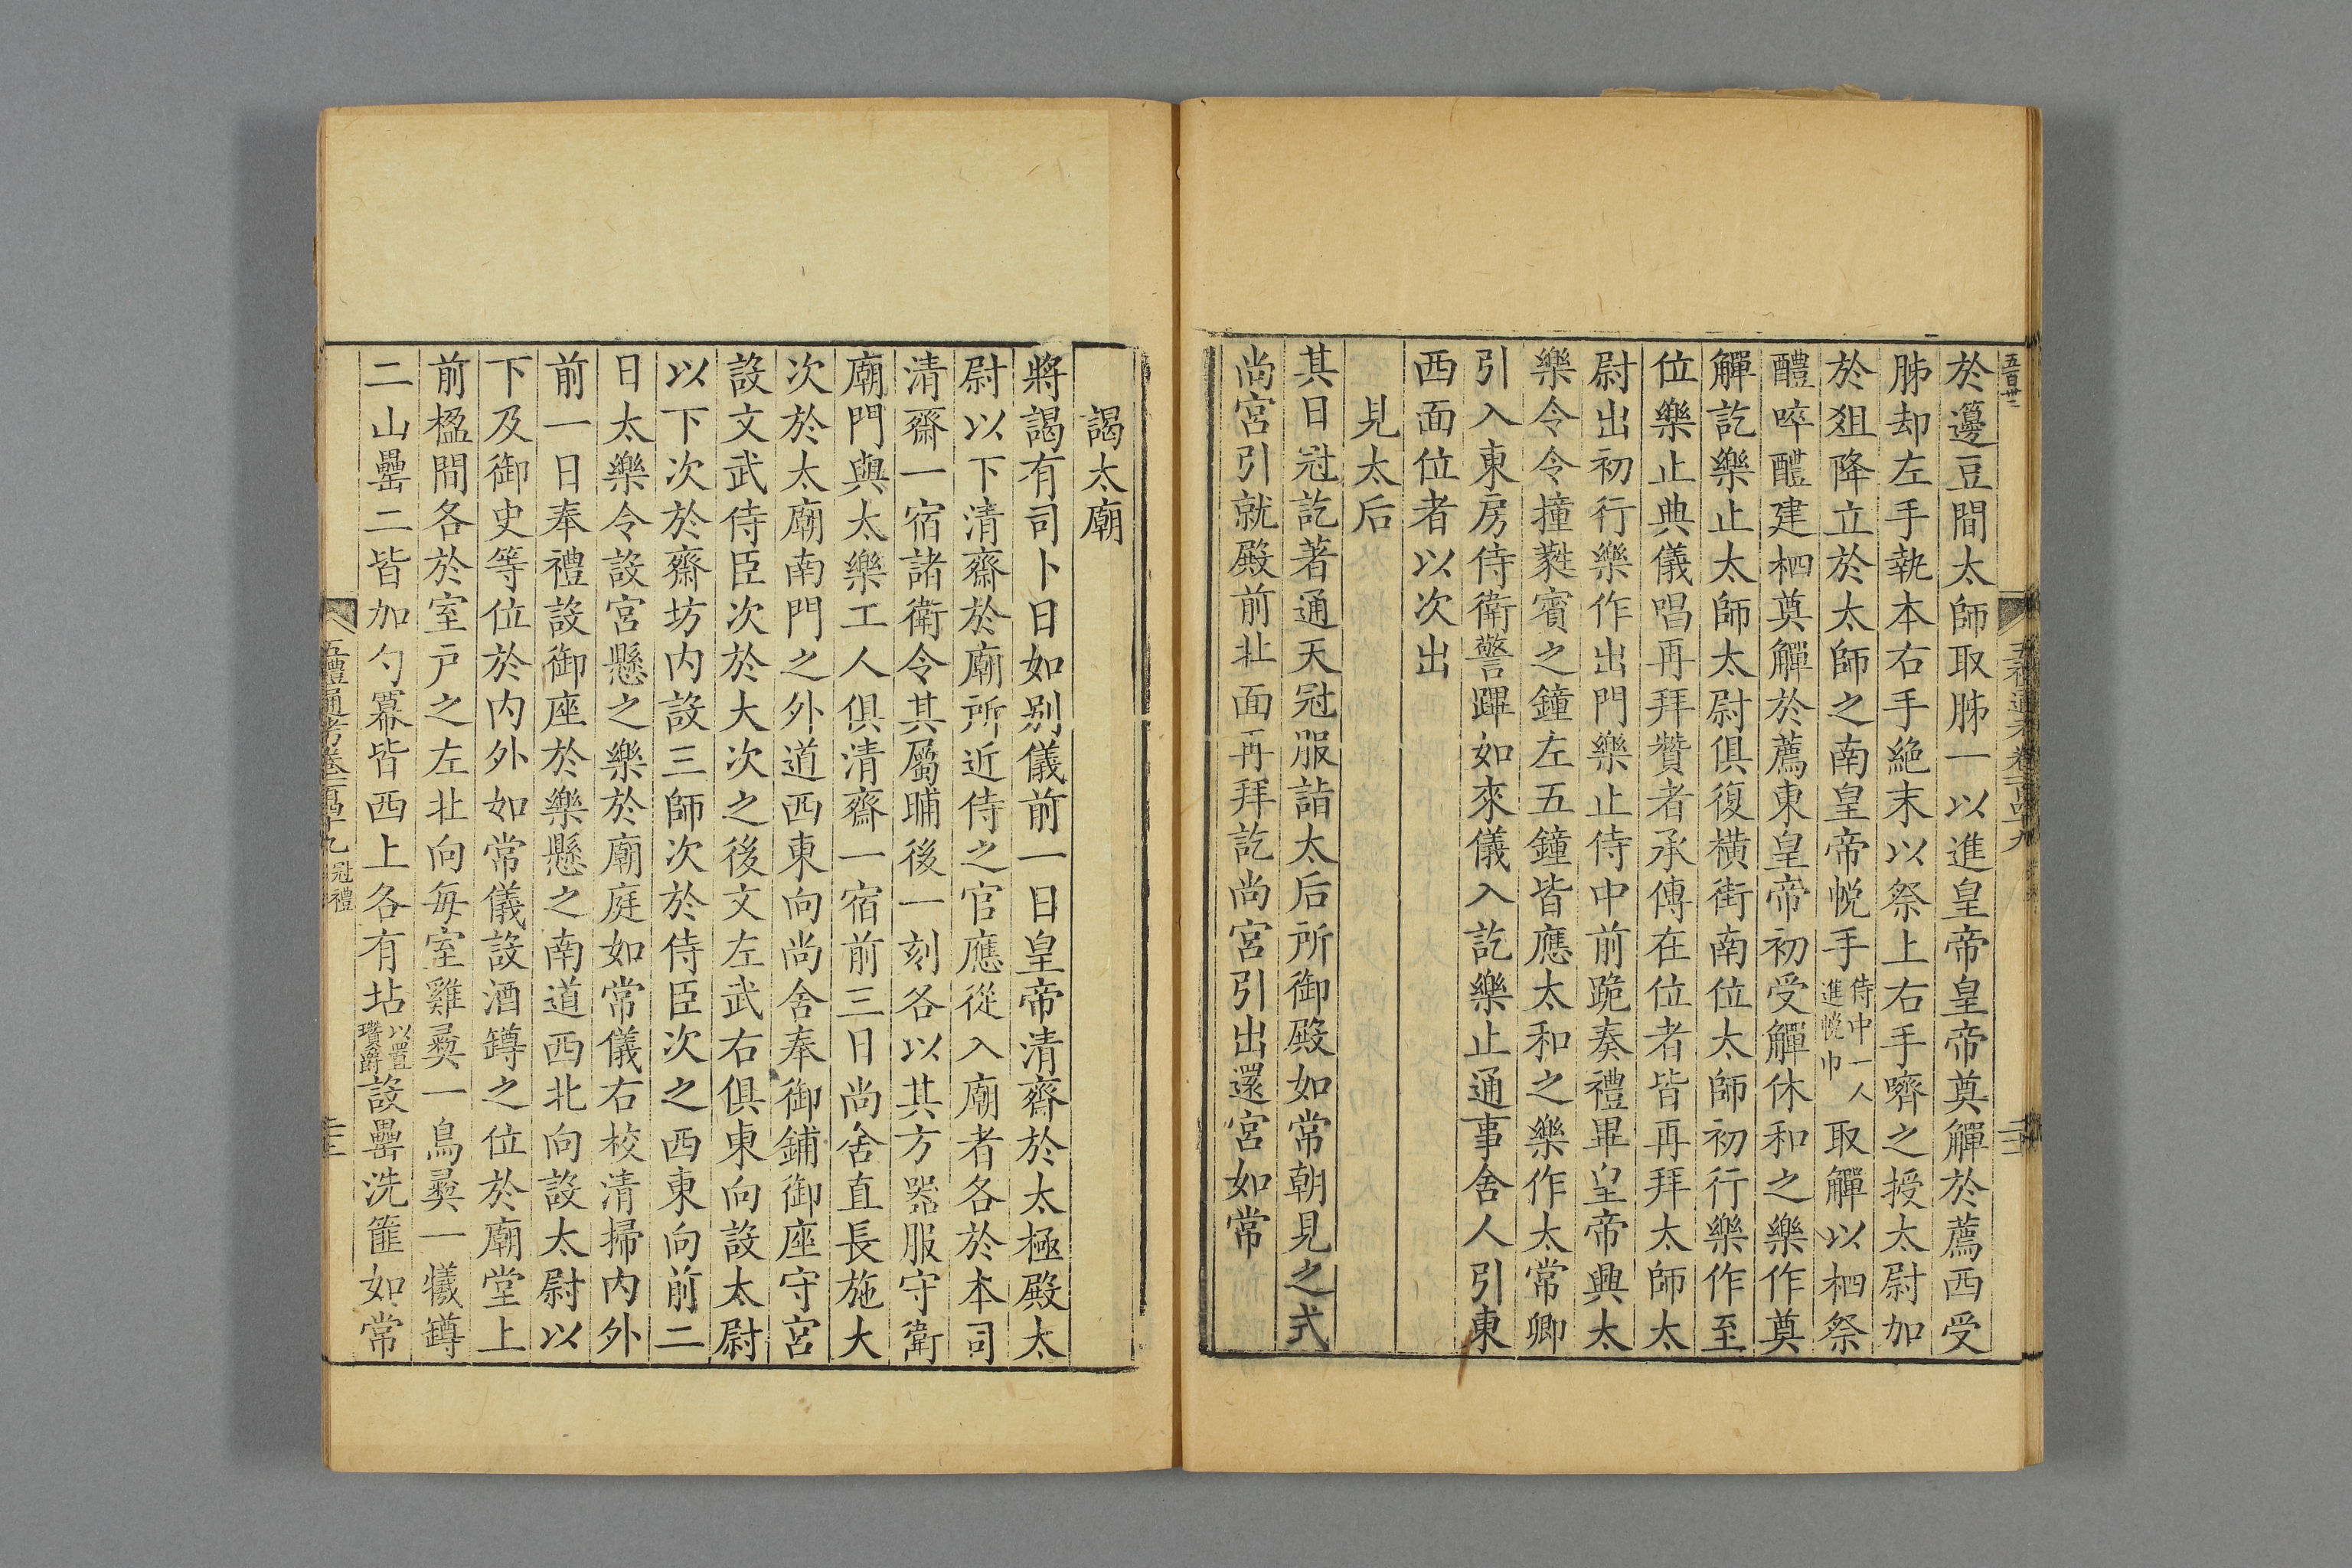 五百卅三
於籩豆間太師取胏一以進皇帝皇帝奠觶於薦西受
胏却左手執本右手絶末以祭上右手嚌之授太尉加
於俎降立於太師之南皇帝帨手侍中一人進帨巾取觶以柶祭
醴啐醴建柶奠觶於薦東皇帝初受觶休和之樂作奠
觶訖樂止太師太尉俱復横街南位太師初行樂作至
位樂止典儀唱再拜贊者承傳在位者皆再拜太師太
尉出初行樂作出門樂止侍中前跪奏禮畢皇帝興太
樂令令撞蕤賓之鐘左五鐘皆應太和之樂作太常卿
引入東房侍衛警蹕如來儀入訖樂止通事舍人引東
西面位者以次出
見太后
其日冠訖著通天冠服詣太后所御殿如常朝見之式
尚宮引就殿前北面再拜訖尚宮引出還宮如常
謁太廟
將謁有司卜日如别儀前一日皇帝清齋於太極殿太
尉以下清齋於廟所近侍之官應從入廟者各於本司
清齋一宿諸衛令其屬晡後一刻各以其方器服守衛
廟門與太樂工人俱清齋一宿前三日尚舍直長施大
次於太廟南門之外道西東向尚舍奉御鋪御座守宮
設文武侍臣次於大次之後文左武右俱東向設太尉
以下次於齋坊内設三師次於侍臣次之西東向前二
日太樂令設宮懸之樂於廟庭如常儀右校清掃内外
前一日奉禮設御座於樂懸之南道西北向設太尉以
下及御史等位於内外如常儀設酒罇之位於廟堂上
前楹間各於室戸之左北向每室雞彞一鳥彞一犧罇
二山罍二皆加勺冪皆西上各有坫以置瓚爵設罍洗篚如常
五禮通考卷一百四十九 冠禮